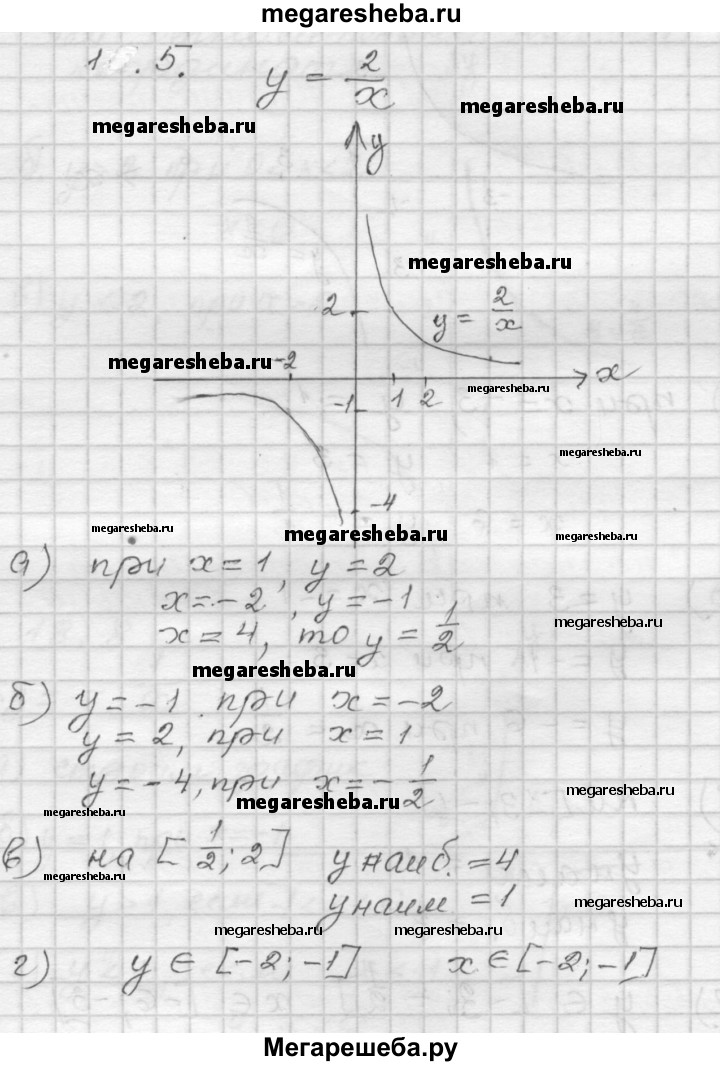 megaresheba.ru
1 .5. y = 2/x
megaresheba.ru
megaresheba.ru
y
megaresheba.ru
2
y = 2/x
megaresheba.ru
-2
x
megaresheba.ru
-1 1 2
megaresheba.ru
-4
megaresheba.ru
megaresheba.ru
megaresheba.ru
а) при x = 1, y = 2
x = -2, y = -1
megaresheba.ru
x = 4, то y = 1/2
megaresheba.ru
б) y = -1 при x = -2
y = 2, при x = 1
y = -4, при x = -1/2
megaresheba.ru
megaresheba.ru
megaresheba.ru
в) на [1/2; 2] y наиб. = 4
megaresheba.ru
y наим = 1
megaresheba.ru
megaresheba.ru
megaresheba.ru
г) y ∈ [-2; -1] x ∈ [-2; -1]
Мегарешеба.ру